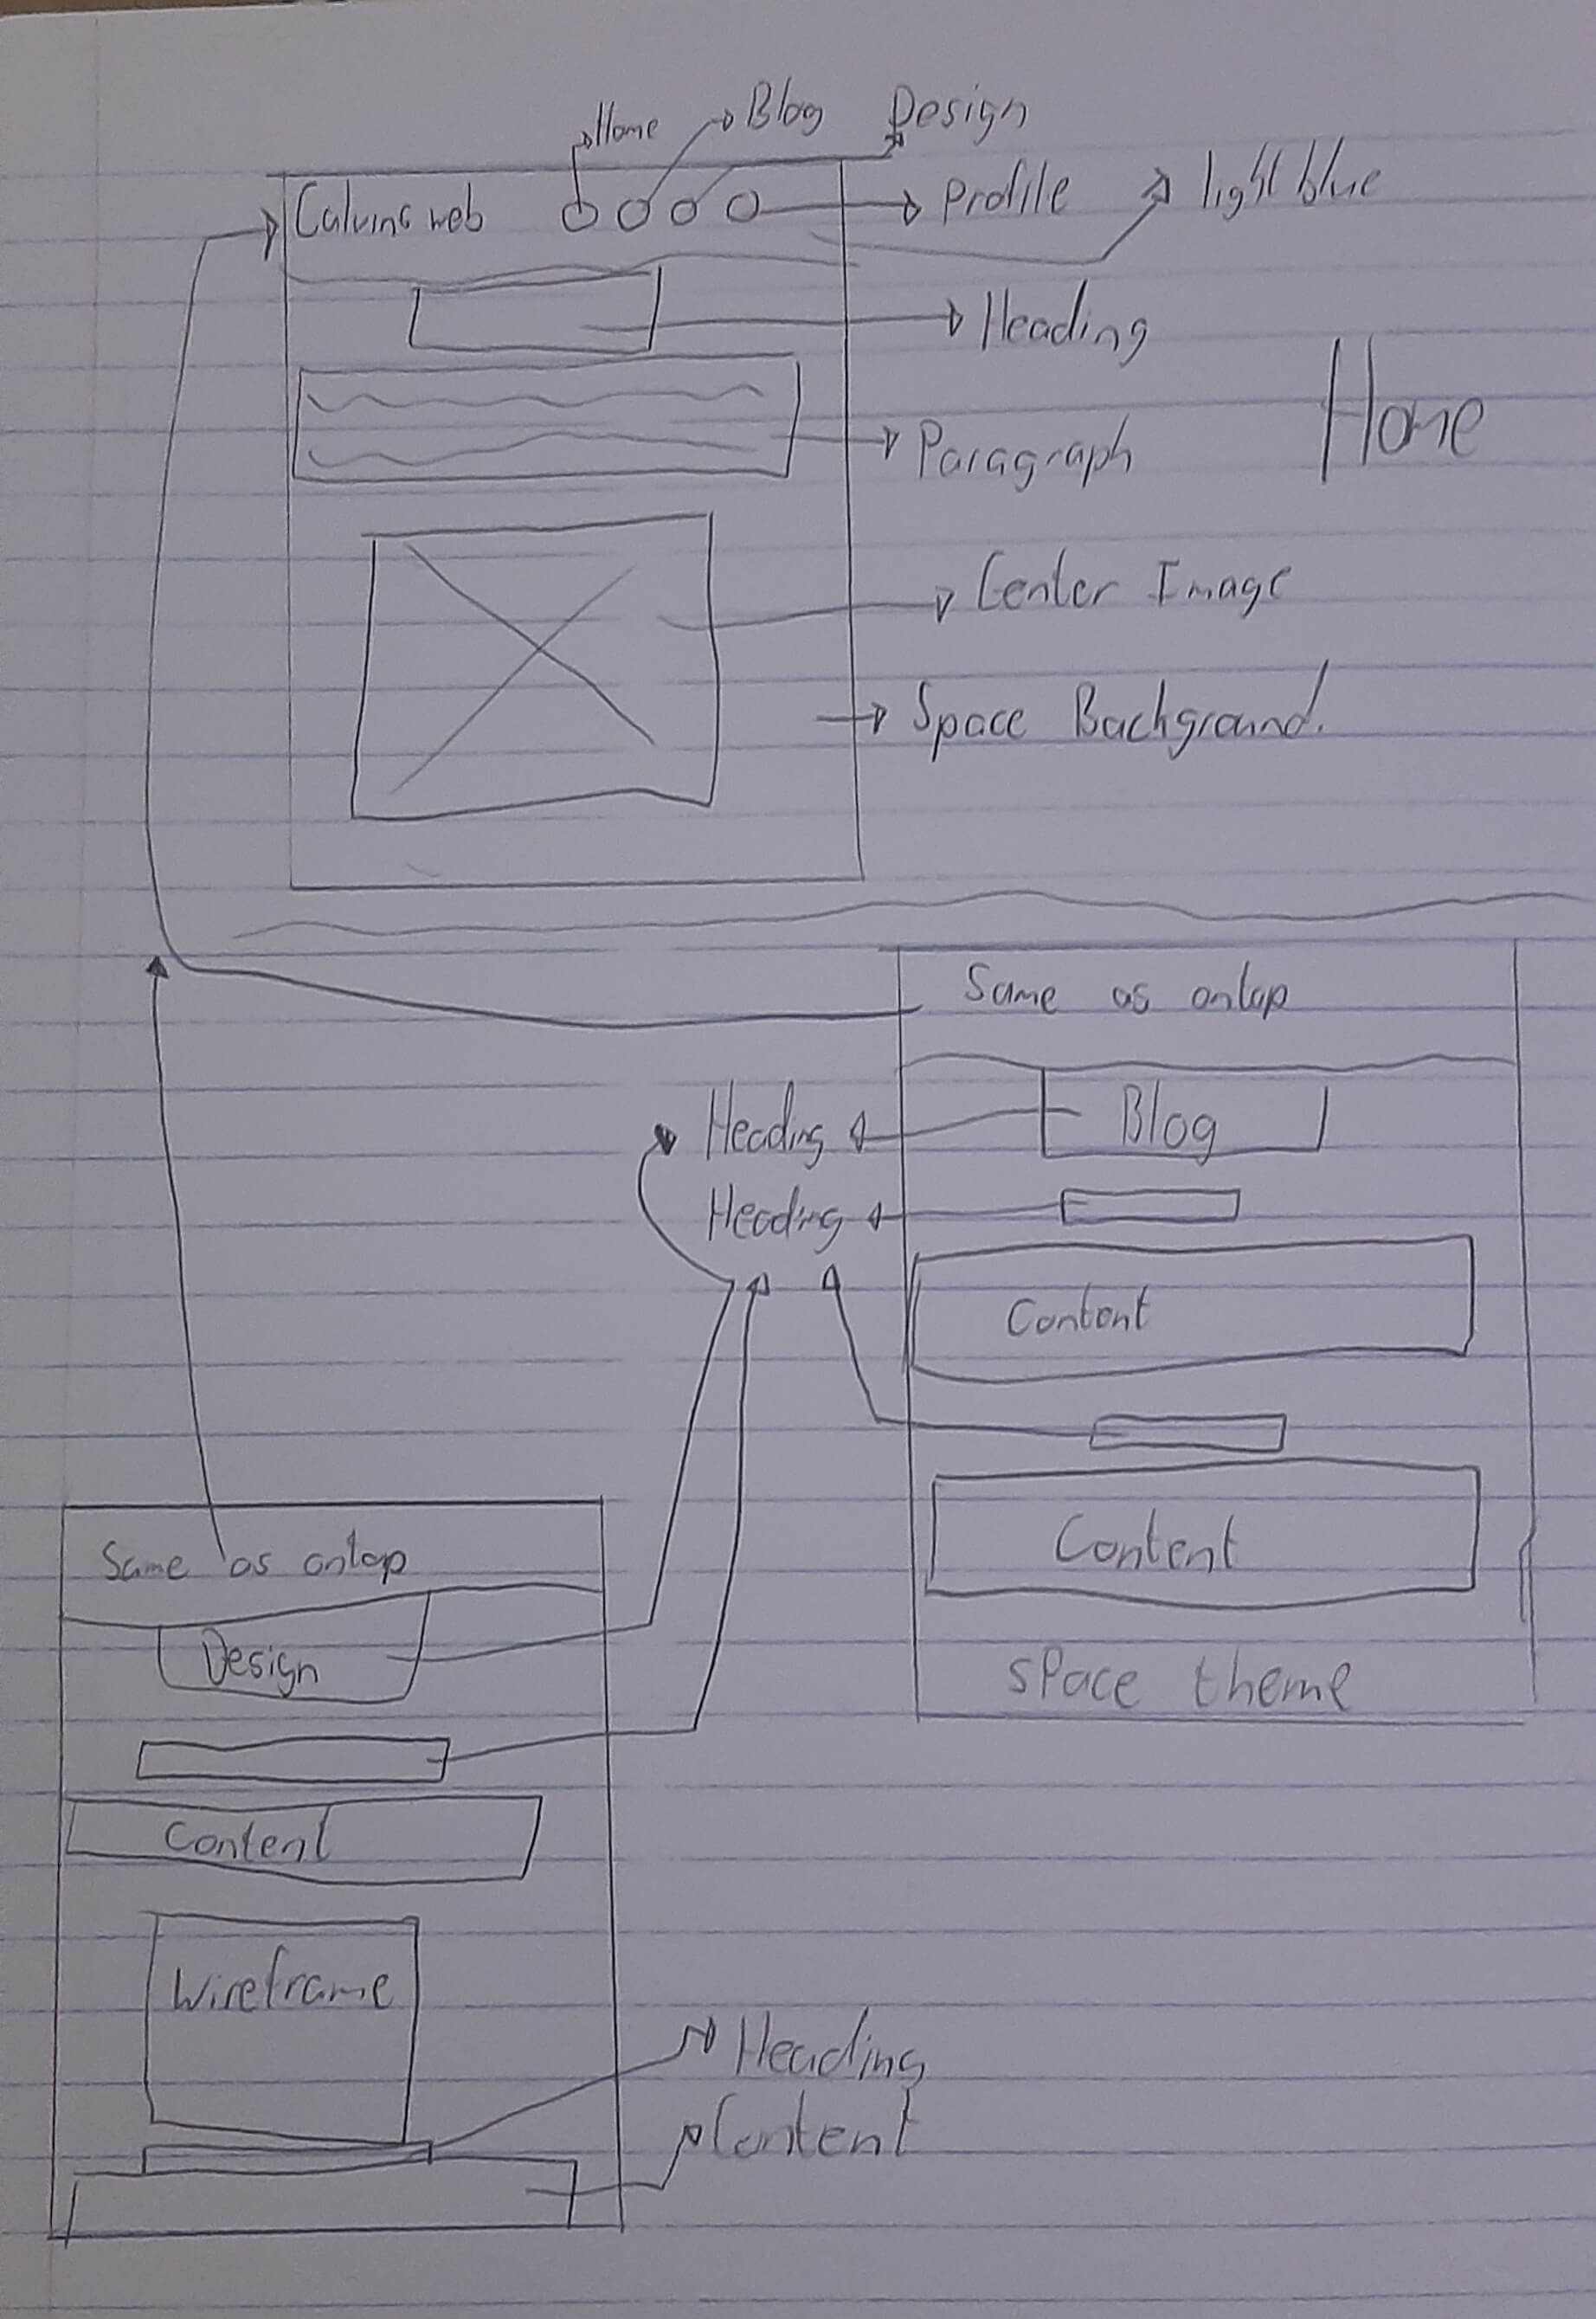 Home
Blog
Design
Calvins web
Profile
light blue
Heading
Home
Paragraph
Center Image
Space Background.
Same as ontop
Heading
Blog
Heading
Content
Content
Space theme
Same as ontop
Design
Content
Wireframe
Heading
Content